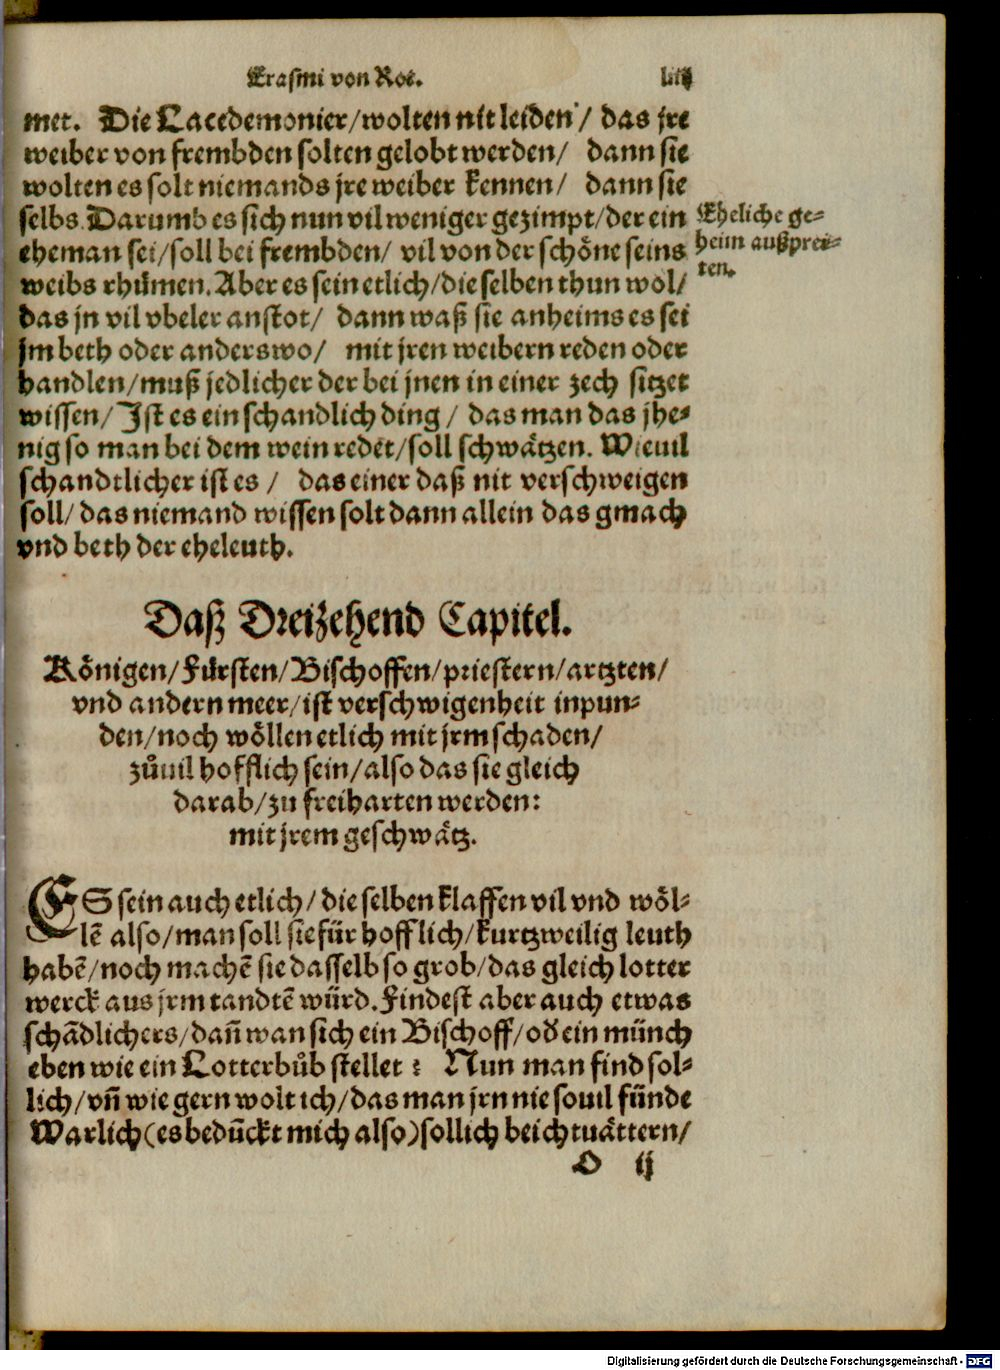 Erasmi von Rot. liij
met. Die Lacedemonier/wolten nit leiden/ das jre
weiber von frembden solten gelobt werden/ dann sie
wolten es solt niemands jre weiber kennen/ dann sie
selbs. Darumb es sich nun vil weniger gezimpt/der ein
eheman sei/soll bei frembden/ vil von der schöne seins
weibs rhümen. Aber es sein etlich/die selben thun wol/
das jn vil vbeler anstot/ dann waß sie anheims es sei
jm beth oder anderswo/ mit jren weibern reden oder
handlen/muß jedlicher der bei jnen in einer zech sitzet
wissen/ Ist es ein schandlich ding/ das man das jhe⸗
nig so man bei dem wein redet/soll schwätzen. Wieuil
schandtlicher ist es/ das einer daß nit verschweigen
soll/ das niemand wissen solt dann allein das gmach
vnd beth der eheleuth.
Eheliche ge⸗
heim außprei⸗
ten.
Daß Dreizehend Capitel.
Königen/Fürsten/Bischoffen/priestern/artzten/
vnd andern meer/ist verschwigenheit inpun⸗
den/noch wöllen etlich mit jrm schaden/
zůuil hofflich sein/also das sie gleich
darab/zu freiharten werden:
mit jrem geschwätz.
ES sein auch etlich/ die selben klaffen vil vnd wöl⸗
lẽ also/man soll sie für hofflich/kurtzweilig leuth
habẽ/noch machẽ sie dasselb so grob/das gleich lotter
werck aus jrm tandtẽ würd. Findest aber auch etwas
schãdlichers/dañ wan sich ein Bischoff/od ein münch
eben wie ein Lotterbůb stellet: Nun man find sol⸗
lich/vñ wie gern wolt ich/das man jrn nie souil fünde
Warlich(es bedückt mich also)sollich beichtuättern/
O ij
Digitalisierung gefördert durch die Deutsche Forschungsgemeinschaft - DFG